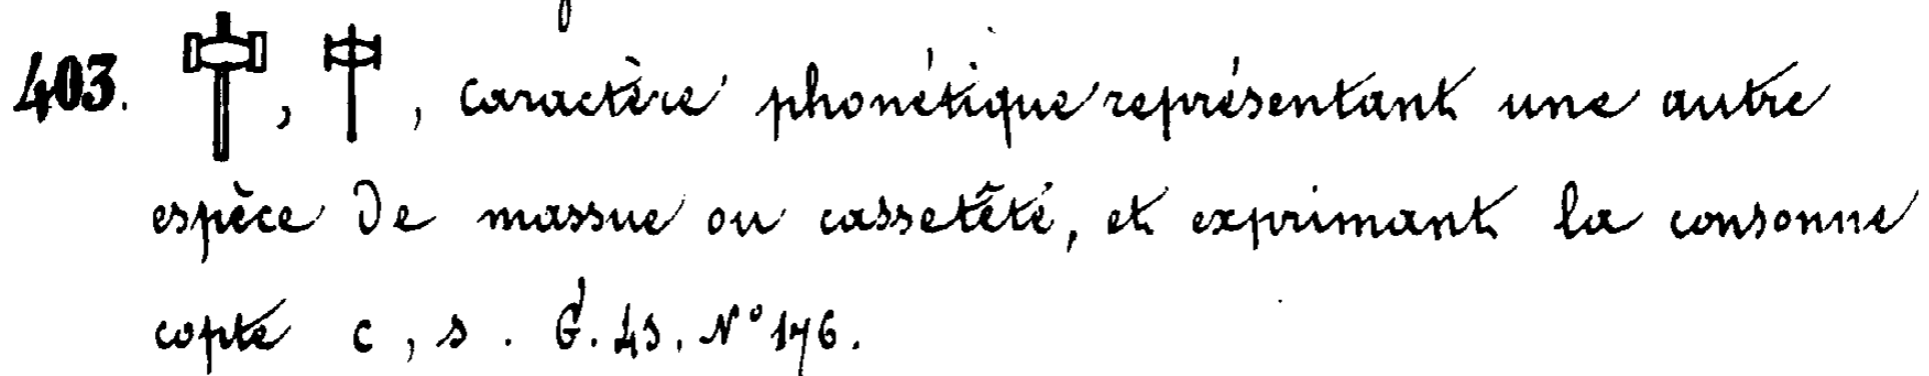 403. 𓌉, 𓌉, caractère phonétique représentant une autre
espèce de massue ou cassetête, et exprimant la consonne
copte ⲥ, s. G. 45. N° 176.